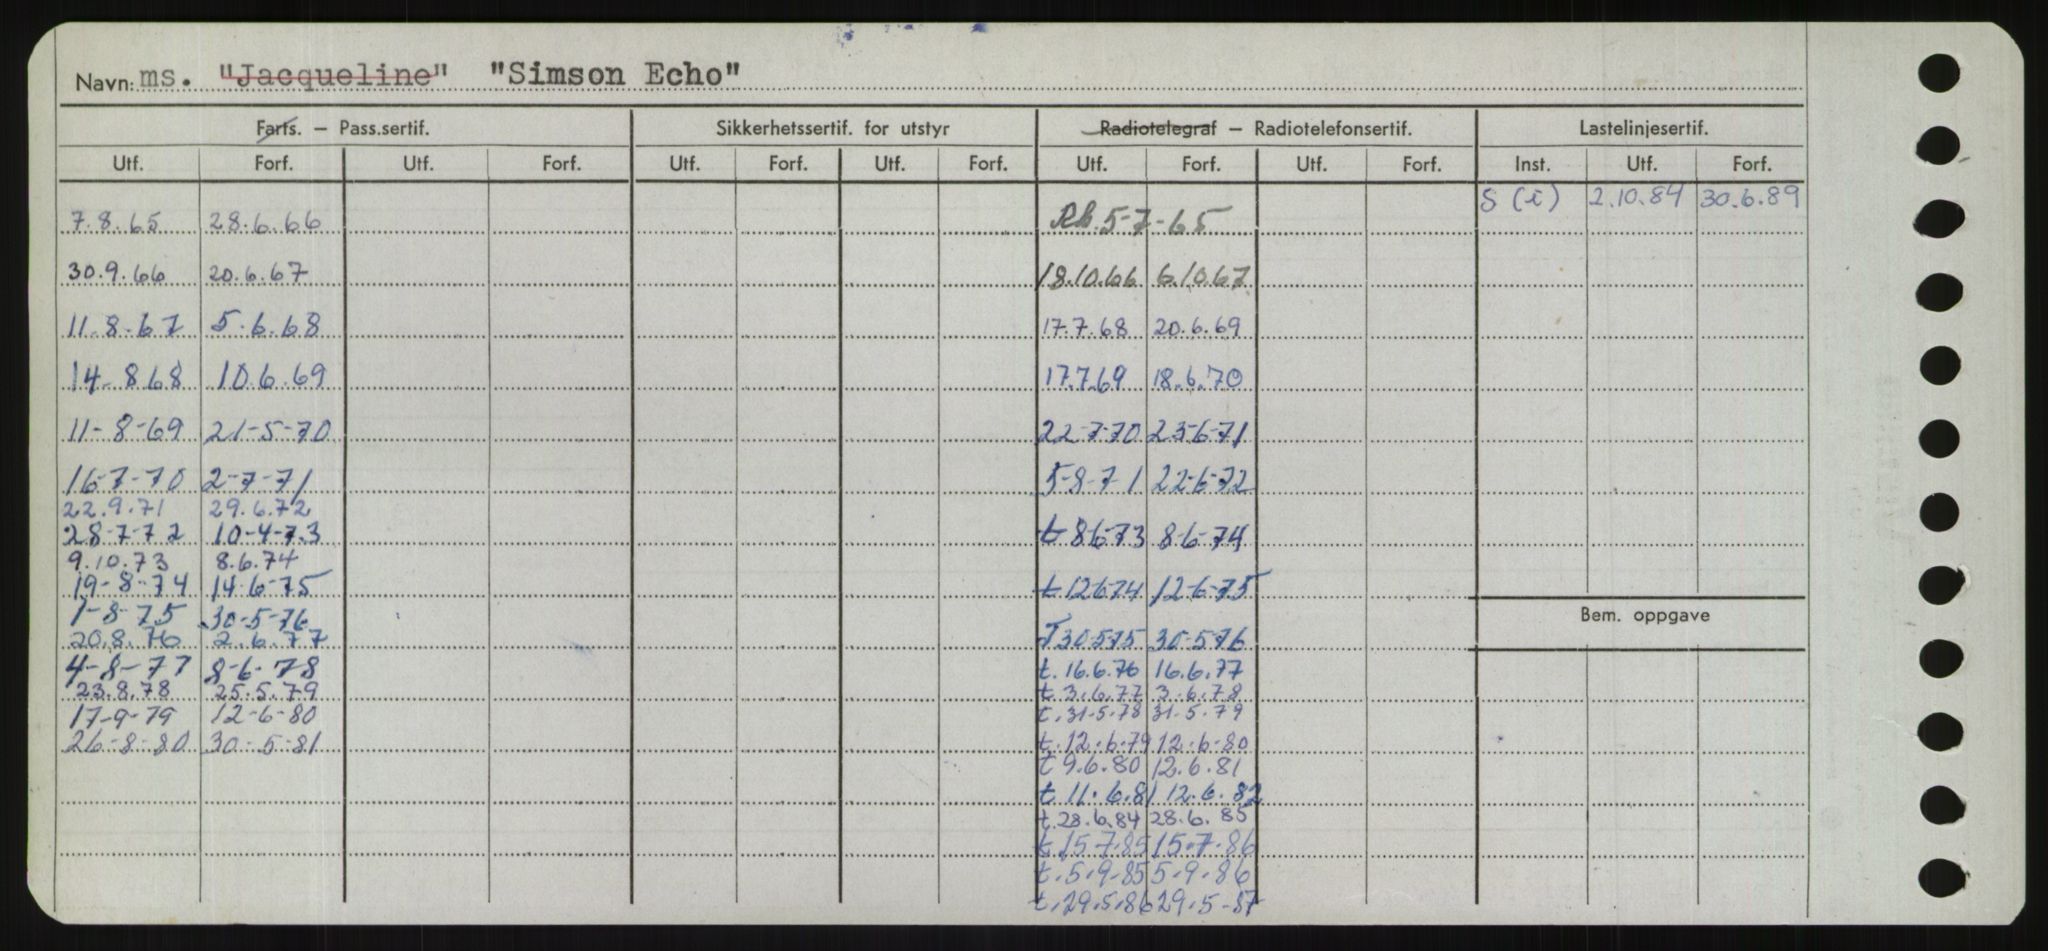 Navn: ms. "Jacqueline" "Simson Echo"
Farts. — Pass.sertif. Sikkerhetssertif. for utstyr Radiotelegraf — Radiotelefonsertif. Lastelinjesertif.
Utf. Forf. Utf. Forf. Utf. Forf. Utf. Forf. Utf. Forf. Utf. Forf. Inst. Utf. Forf.
S (i) 2.10.84 30.6.89
7.8.65 28.6.66 Rb. 5-7-65
30.9.66 20.6.67 18.10.66 6.10.67
11-8-67 5.6.68 17.7.68 20.6.69
14-868 10.6.69 17.7.69 18.6.70
11-8-69 21-5-70 22-7-70 23-6-71
16-7-70 2-7-71 5-8-71 22-6-72
22.9.71 29.6.72
28-7-72 10-4-73 t 8673 8-6-74
9.10.73 8.6.74
19-8-74 14-6-75 t 12674 12-6-75
Bem. oppgave
1-8-75 30-5-76
20.8.76 2.6.77 T 30-575 30-5-76
4-8-77 8-6-78 t. 16.6.76 16.6.77
23.8.78 25.5.79 t 3.6.77 3.6.78
17-9-79 12-6-80 t. 31-5-78 31.5.79
26-8-80 30-5-81 t. 12.6.79 12.6-80
t 9.6.80 12.6.81
t 11.6.81 12.6.82
t. 28.6.84 28.6.85
t. 15-7-85 15-7-86
t. 5.9-85 5-9-86
t. 29.5.86 29.5-87